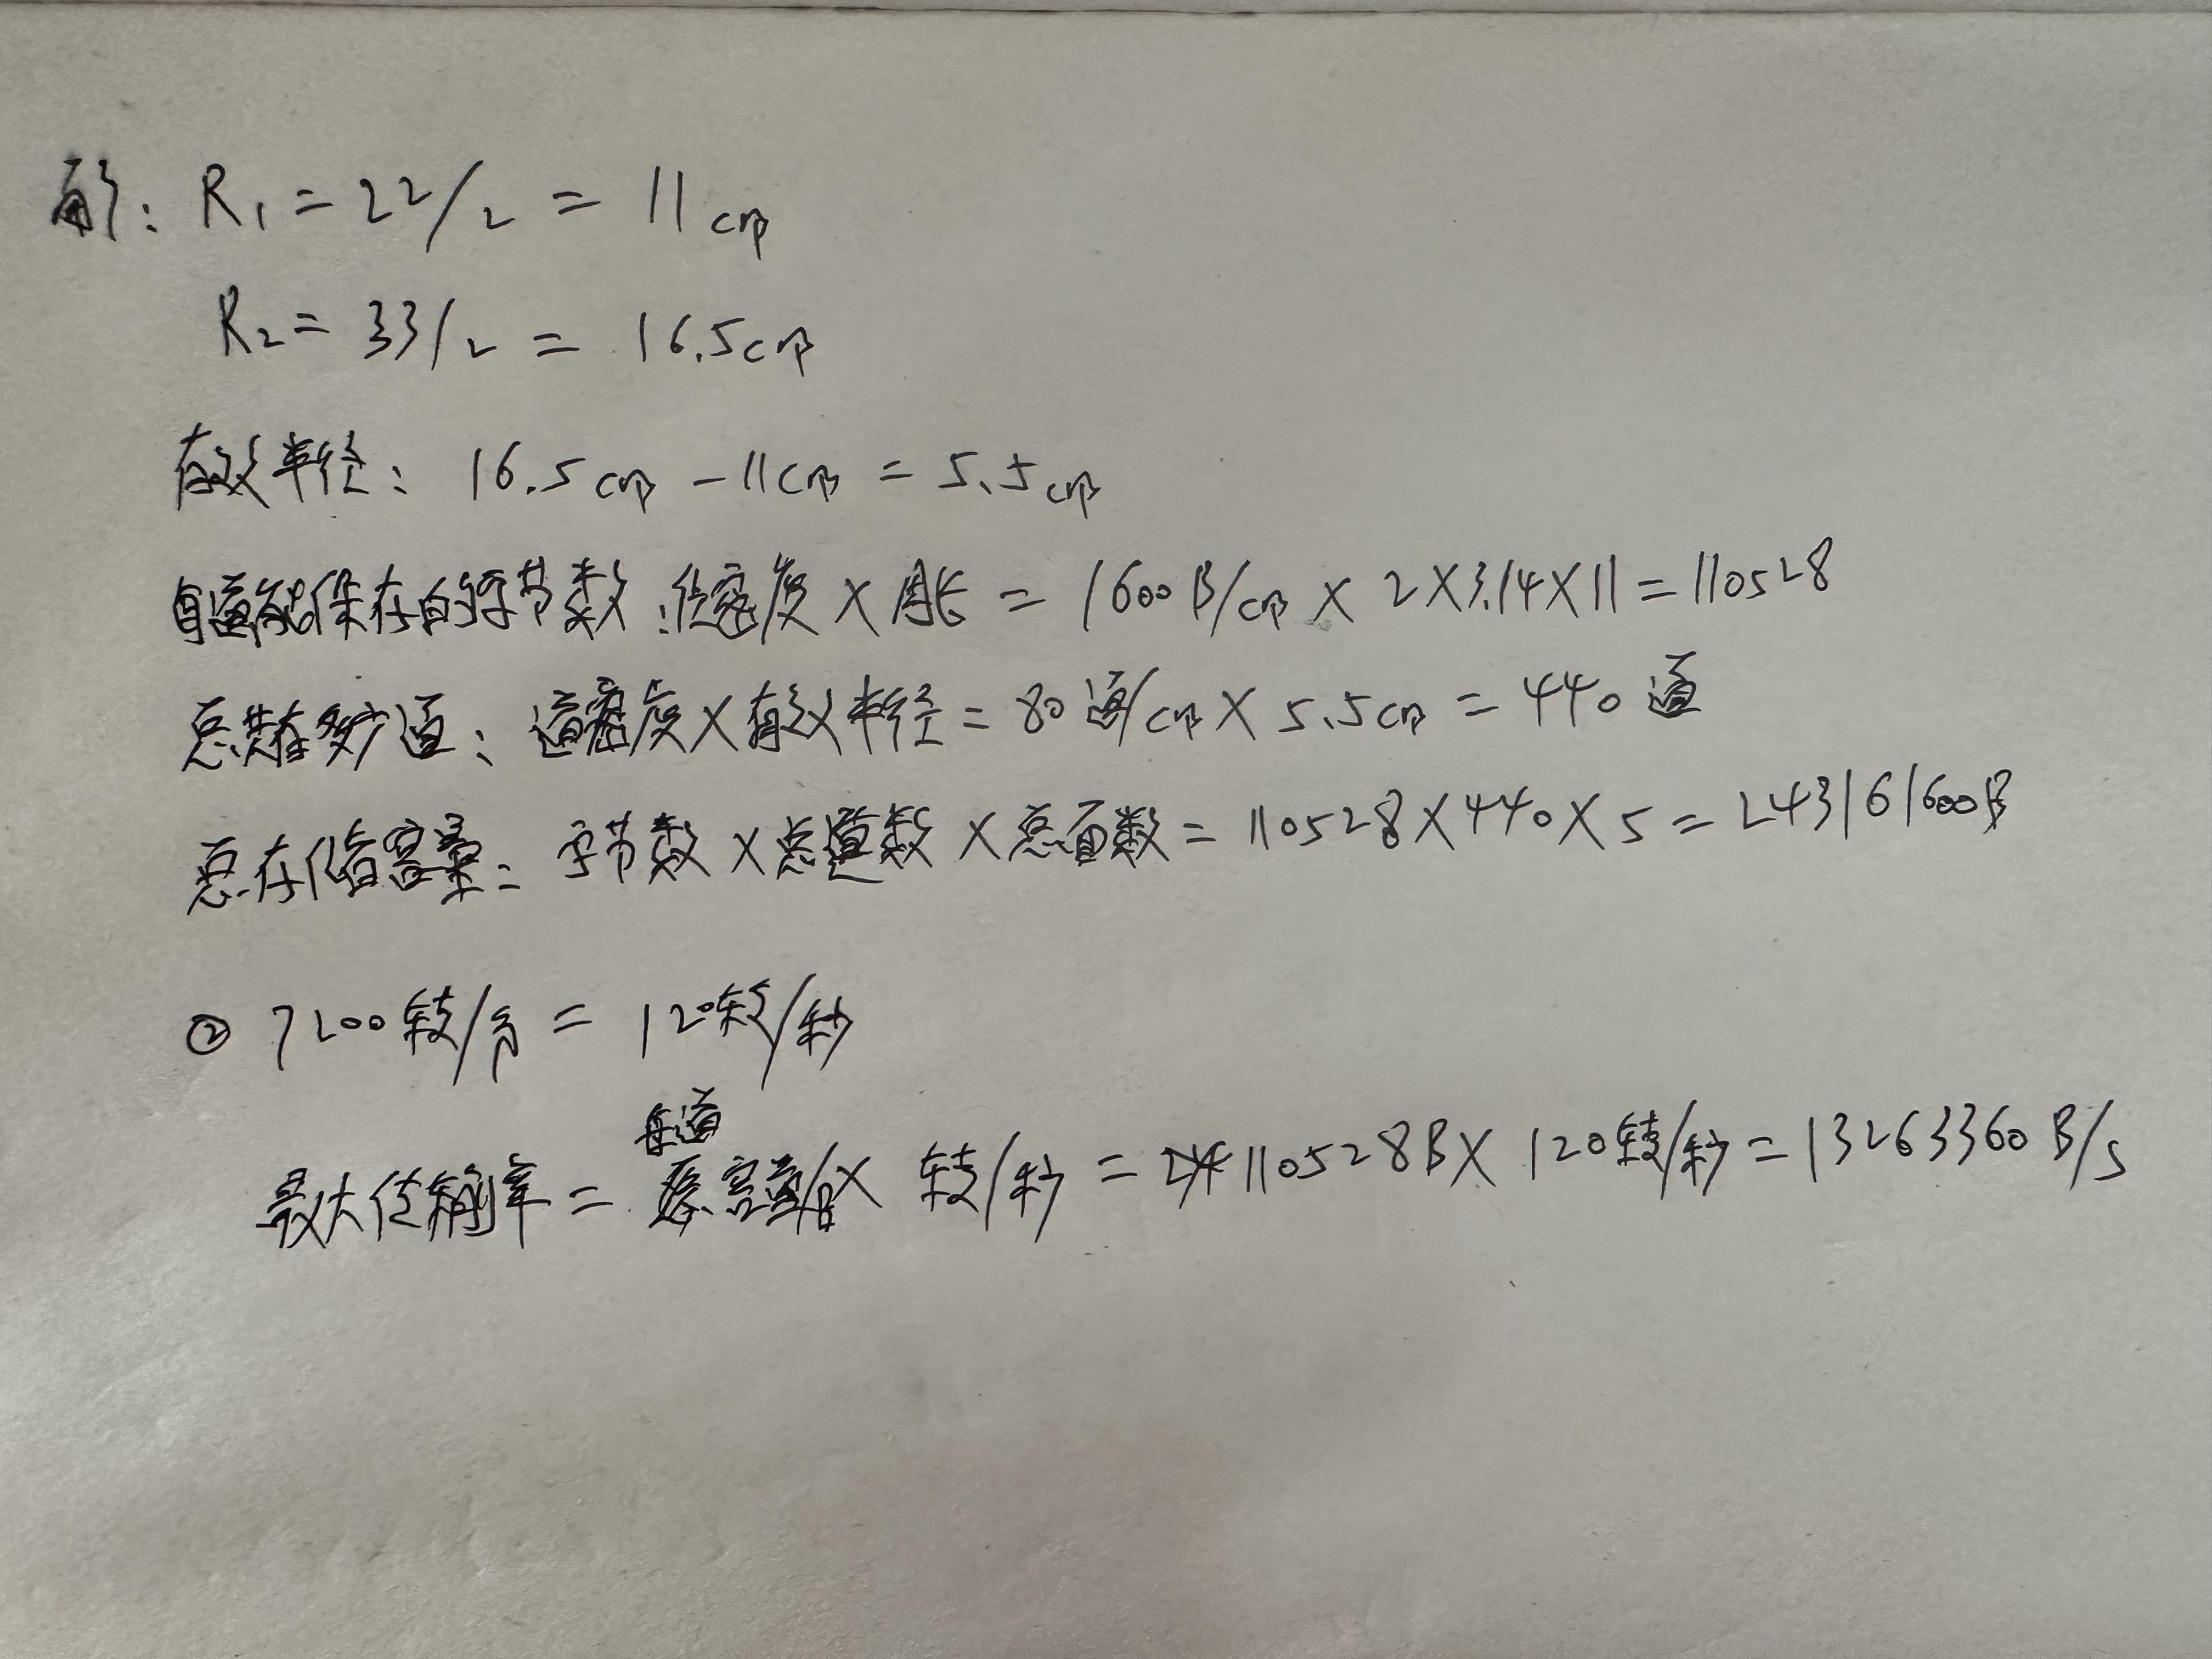 解: R₁ = 22/2 = 11cm
R₂ = 33/2 = 16.5cm
有效半径: 16.5cm - 11cm = 5.5cm
每道能保存的字节数:位密度 × 周长 = 1600B/cm × 2×3.14×11 = 110528
总共有多少道: 道密度×有效半径 = 80道/cm × 5.5cm = 440道
总存储容量= 字节数×总道数×总面数 = 110528×440×5 = 243161600B
② 7200转/分 = 120转/秒
每道
最大传输率 = 容量 × 转/秒 = 110528B× 120转/秒 = 13263360B/s